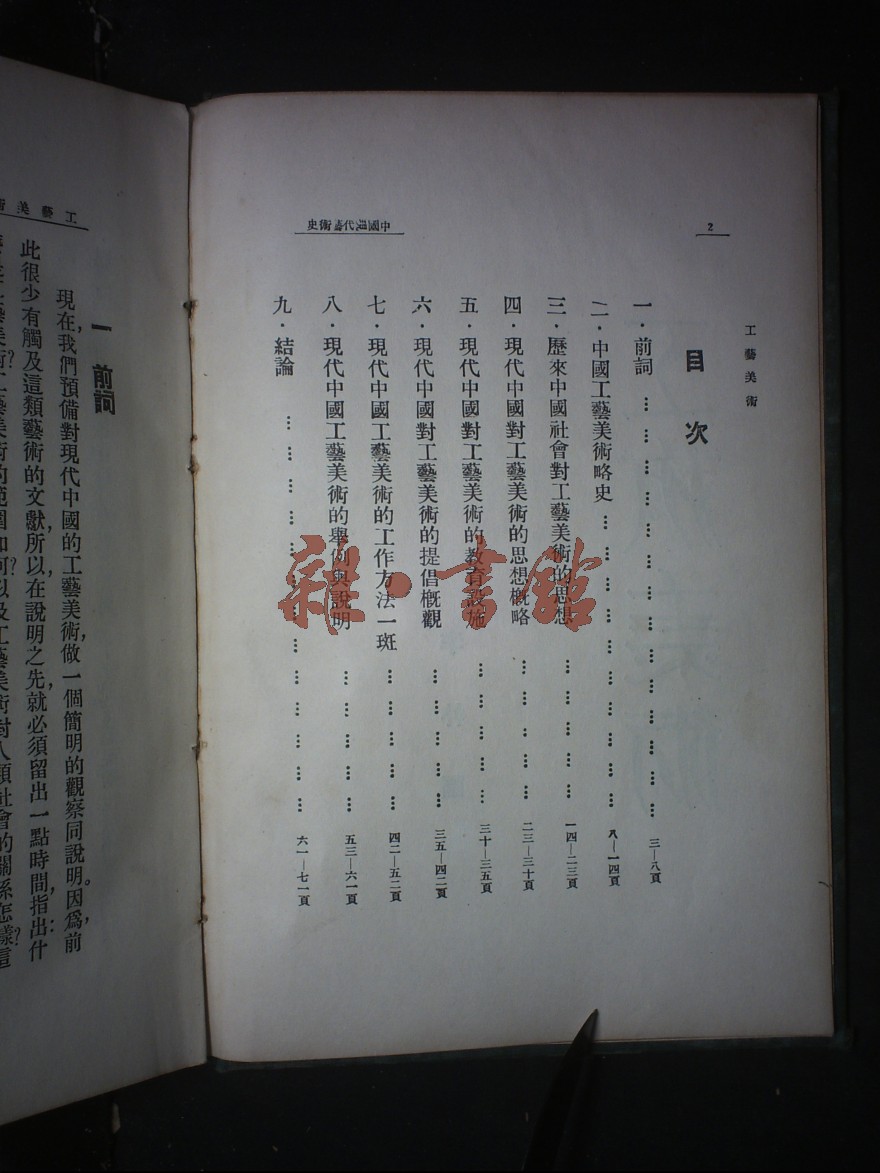 2
中國現代藝術史
工藝美術
目次
一·前詞………………………………三—八頁
二·中國工藝美術略史…………………八—一四頁
三·歷來中國社會對工藝美術的思想………一四—二三頁
四·現代中國對工藝美術的思想概略………二三—三十頁
五·現代中國對工藝美術的教育設施………三十—三五頁
六·現代中國對工藝美術的提倡概觀………三五—四二頁
七·現代中國工藝美術的工作方法一斑………四二—五二頁
八·現代中國工藝美術的舉例與說明………五三—六一頁
九·結論………………………………六一—七一頁
雜·書館
工藝美術
一 前詞
現在,我們預備對現代中國的工藝美術,做一個簡明的觀察同說明。因爲前,
此很少有觸及這類藝術的文獻,所以在說明之先,就必須留出一點時間,指出:什
工藝美術?工藝美術的範圍如何?以及工藝美術對人類社會的關係怎樣?這